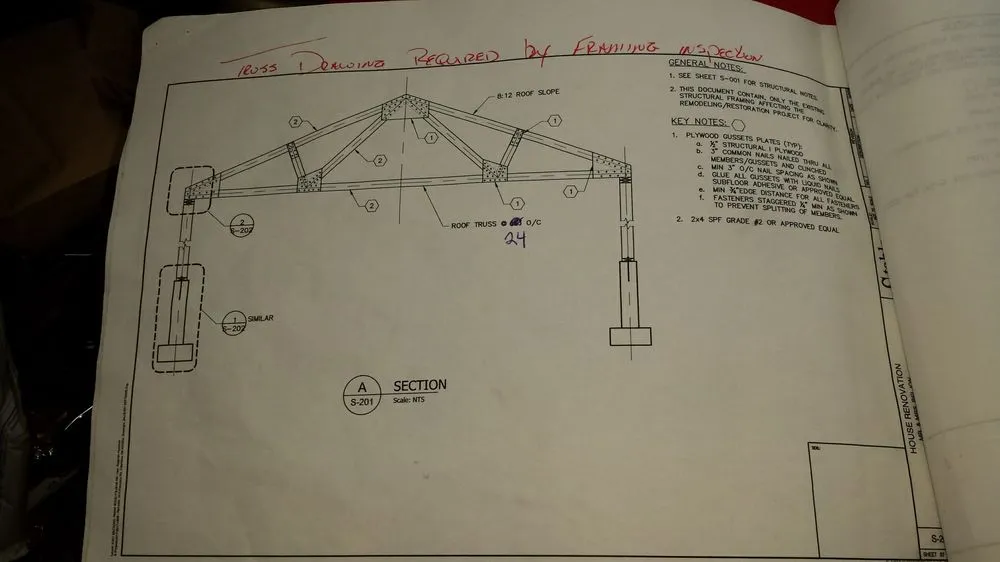 TRUSS DRAWING REQUIRED by FRAMING INSPECTION
GENERAL NOTES:
1. SEE SHEET S-001 FOR STRUCTURAL NOTES.
2. THIS DOCUMENT CONTAIN, ONLY THE EXISTING
STRUCTURAL FRAMING AFFECTING THE
REMODELING/RESTORATION PROJECT FOR CLARITY.
KEY NOTES:
1. PLYWOOD GUSSETS PLATES (TYP):
a. ½" STRUCTURAL I PLYWOOD
b. 3" COMMON NAILS NAILED THRU ALL
MEMBERS/GUSSETS AND CLINCHED
c. MIN 3" O/C NAIL SPACING AS SHOWN
d. GLUE ALL GUSSETS WITH LIQUID NAILS
SUBFLOOR ADHESIVE OR APPROVED EQUAL
e. MIN ¾"EDGE DISTANCE FOR ALL FASTENERS
f. FASTENERS STAGGERED ½" MIN AS SHOWN
TO PREVENT SPLITTING OF MEMBERS.
2. 2x4 SPF GRADE #2 OR APPROVED EQUAL
8:12 ROOF SLOPE
2
1
1
2
2
1
1
ROOF TRUSS @ O/C
24
2
S-202
1
S-202
SIMILAR
A
S-201
SECTION
Scale: NTS
HOUSE RENOVATION
S-2
SHEET 07